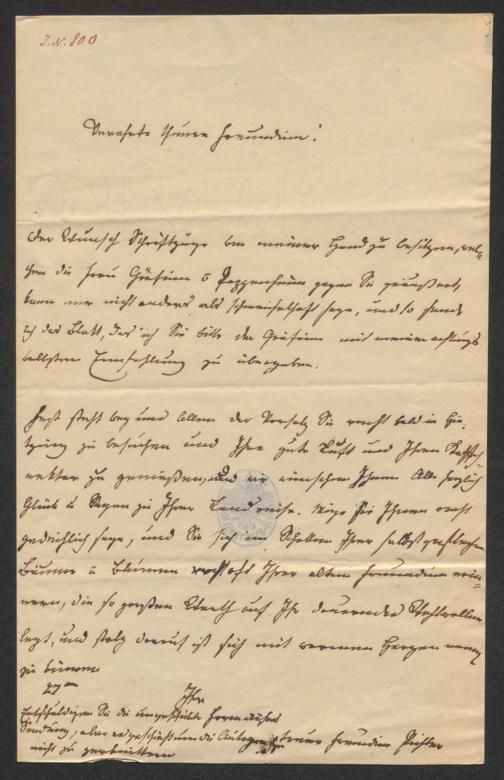 J. N. 800
Verehrte theure Freundinn!
Der Wunsch Schriftzüge von meiner Hand zu besitzen, wel-
chen die Frau Gräfinn v Pappenheim gegen Sie geäußert,
kann mir nicht anders als schmeichelhaft seyn, und so sende
ich das Blatt, das ich Sie bitte der Gräfinn mit meiner achtungs
vollsten Empfehlung zu übergeben.
Fest steht bey uns Allen der Vorsatz Sie recht bald in Hie-
tzing zu besuchen und Ihre gute Luft und Ihren
zu genießen, und wir wünschen Ihnen Alle herzlich
Glück u Segen zu Ihrer Landreise. Möge sie Ihnen recht
gedeihlich seyn, und Sie sich im Schatten Ihrer selbstgepflanzten
Bäume u Blumen recht oft Ihrer alten Freundinn erin-
nern, die so großen Werth auf Ihr dauerndes Wohlwollen
legt, und stolz darauf ist sich mit warmem Herzen nennen
zu können
Ihre
Entschuldigen Sie die ungeschickte Form dieser
Sendung, aber es geschieht um die Autographe
nicht zu zerknittern
treue Freundinn Pichler